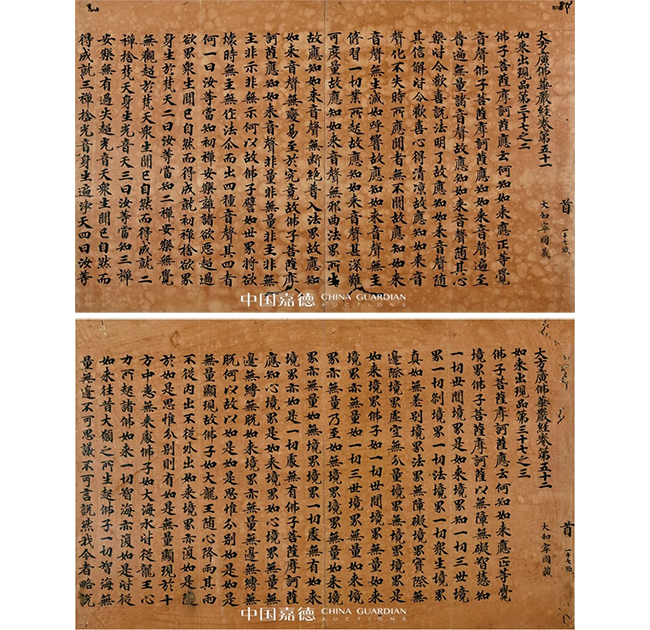 大方廣佛華嚴經卷第五十一
首
如来出現品第三十七之二
大和寧國藏
佛子菩薩摩訶薩應云何知如来應正等覺
音聲佛子菩薩摩訶薩應知如来音聲遍至
普遍無量諸音聲故應知如来音聲隨其心
樂皆令歡喜說法明了故應知如来音聲隨
其信解皆令歡喜心得清涼故應知如来音
聲化不失時所應聞者無不聞故應知如来
音聲無生滅如呼響故應知如来音聲無主
修習一切業所起故應知如来音聲甚深難
可度量故應知如来音聲無邪曲法界所生
故應知如来音聲無斷絕普入法界故應知
如来音聲無變易至於究竟故佛子菩薩摩
訶薩應知如来音聲非量非無量非主非無
主非示非無示何以故佛子譬如世界將欲
壞時無主無作法尒而出四種音聲其四者
何一曰汝等當知初禪安樂離諸欲惡超過
欲界衆生聞已自然而得成就初禪捨欲界
身生於梵天二曰汝等當知二禪安樂無覺
無觀超於梵天衆生聞已自然而得成就二
禪捨梵天身生光音天三曰汝等當知三禪
安樂無有過失超光音天衆生聞已自然而
得成就三禪捨光音身生遍淨天四曰汝等
中国嘉德 CHINA GUARDIAN
AUCTIONS
大方廣佛華嚴經卷第五十二
首
如来出現品第三十七之三
大和寧國藏
佛子菩薩摩訶薩應云何知如来應正等覺
境界佛子菩薩摩訶薩以無障無礙智慧知
一切世間境界是如来境界知一切三世境
界一切剎境界一切法境界一切衆生境界
真如無差別境界法界無障礙境界實際無
邊際境界虛空無分量境界無境界境界是
如来境界佛子如一切世間境界無量如来
境界亦無量如一切三世境界無量如来境
界亦無量乃至如無境界境界無量如来境
界亦無量如無境界境界一切處無有如来
境界亦如是一切處無有佛子菩薩摩訶薩
應知心境界是如来境界如心境界無量無
邊無縛無脫如来境界亦無量無邊無縛無
脫何以故以如是如是思惟分別如是如是
無量顯現故佛子如大龍王隨心降雨其雨
不從內出不從外出如来境界亦復如是隨
於如是思惟分別則有如是無量顯現於十
方中悉無来處佛子如大海水皆從龍王心
力所起諸佛如来一切智海亦復如是皆從
如来往昔大願之所生起佛子一切智海無
量無邊不可思議不可言說然我今者略說
中国嘉德 CHINA GUARDIAN
AUCTIONS